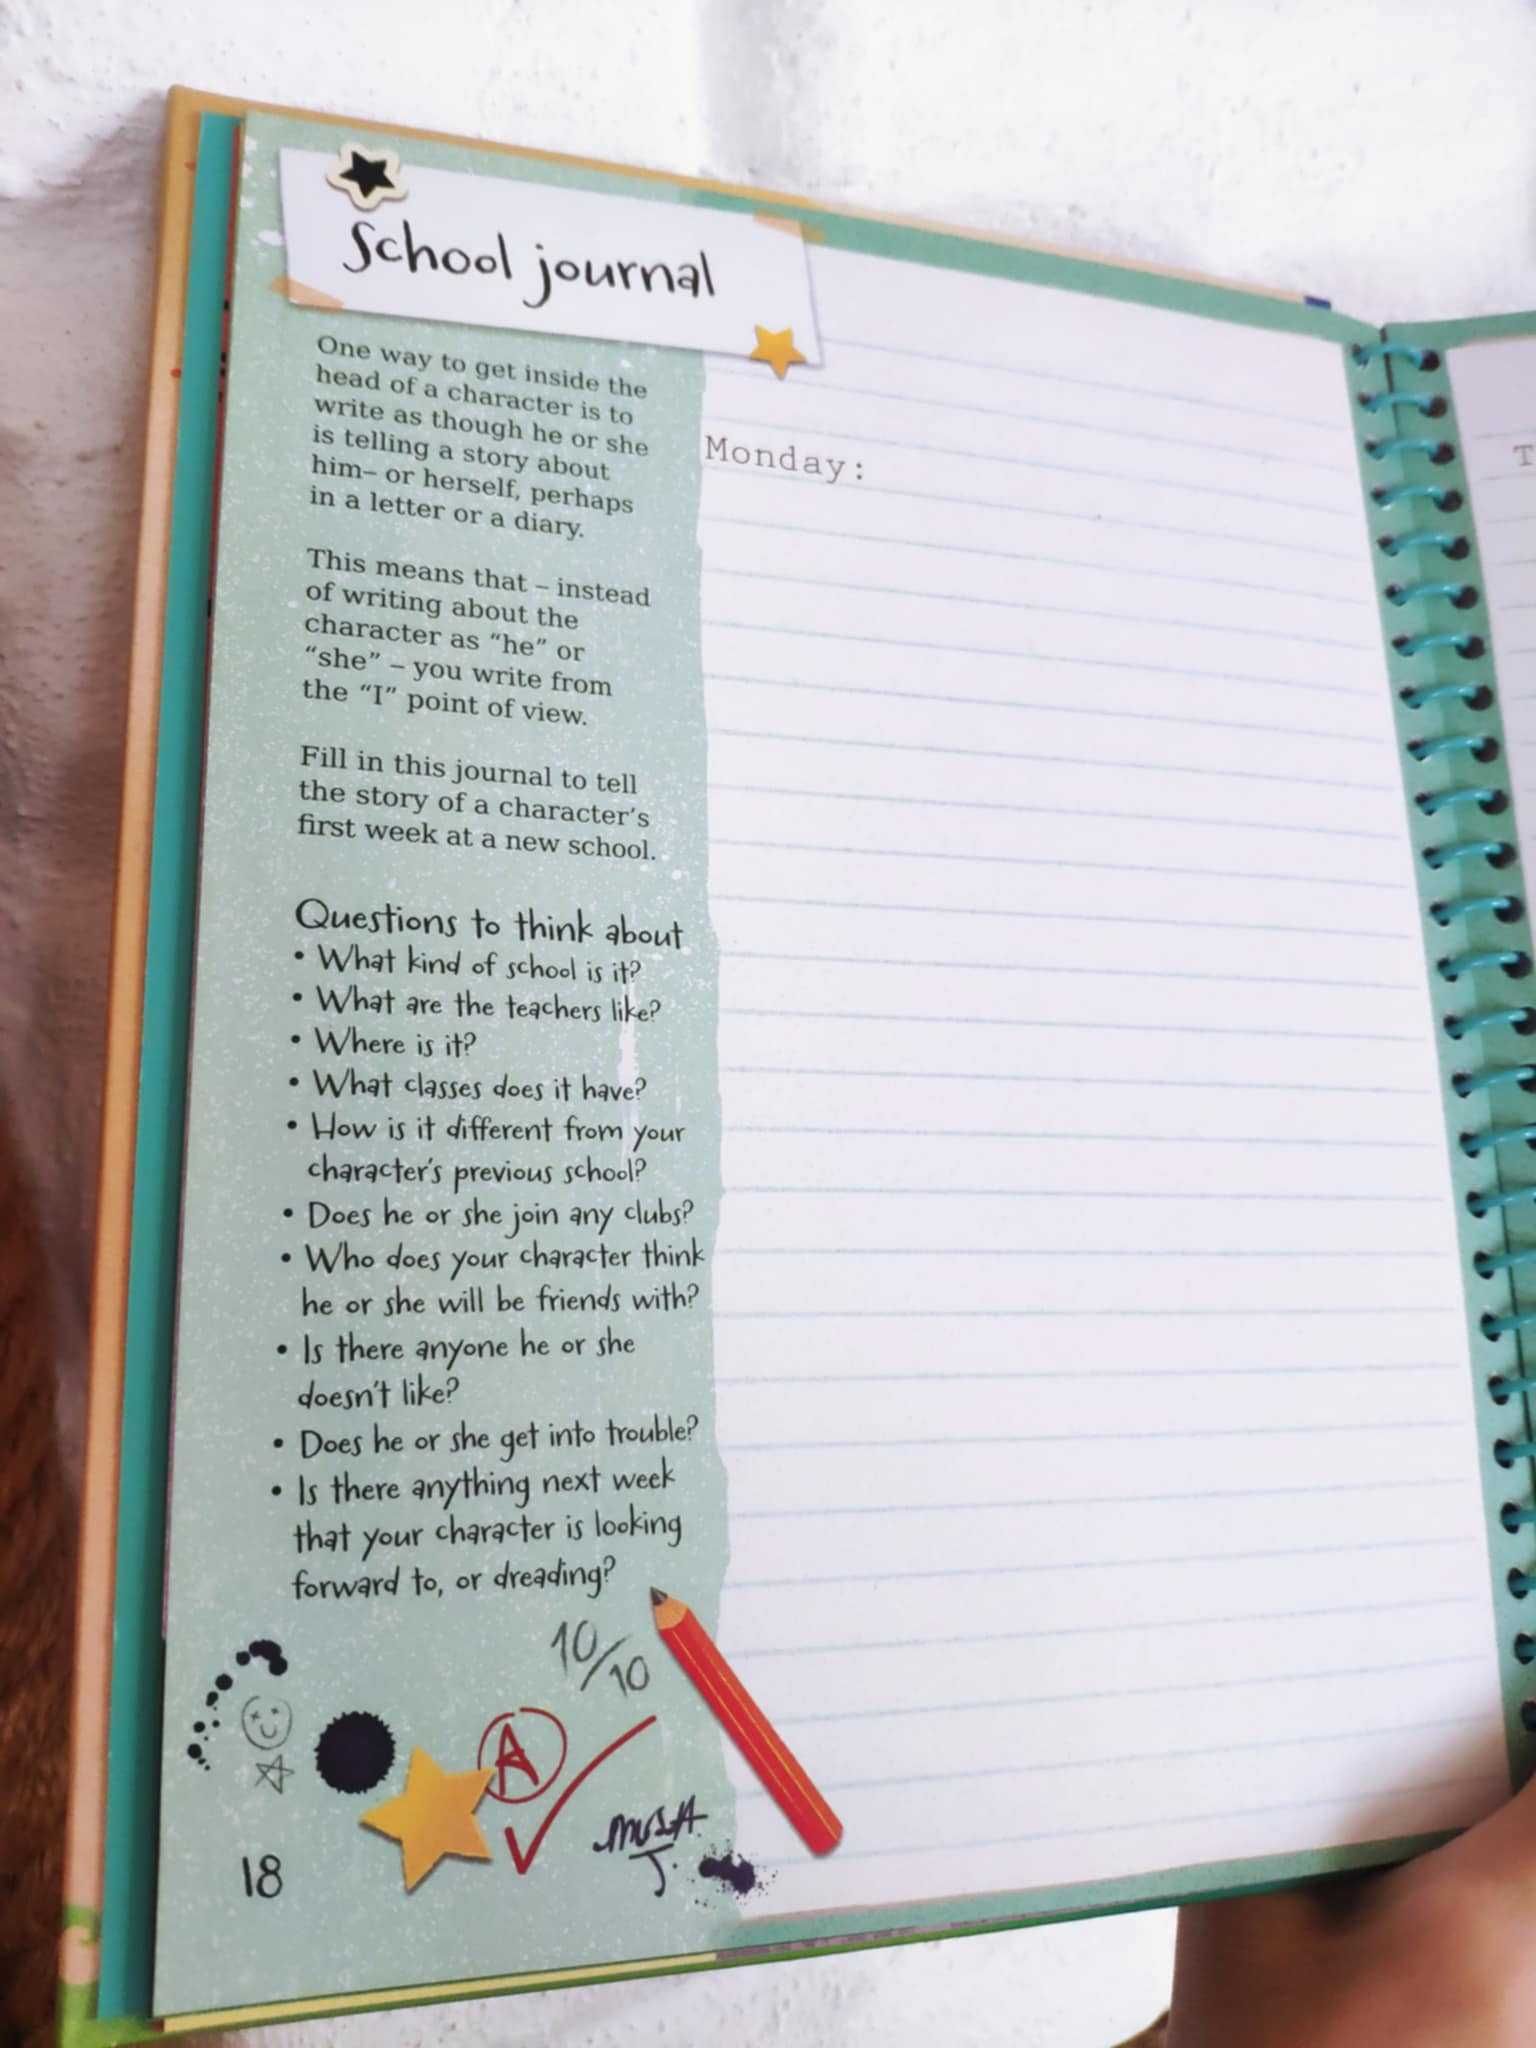 School journal
One way to get inside the
head of a character is to
write as though he or she
is telling a story about
him– or herself, perhaps
in a letter or a diary.
This means that – instead
of writing about the
character as “he” or
“she” – you write from
the “I” point of view.
Fill in this journal to tell
the story of a character’s
first week at a new school.
Questions to think about
• What kind of school is it?
• What are the teachers like?
• Where is it?
• What classes does it have?
• How is it different from your
character’s previous school?
• Does he or she join any clubs?
• Who does your character think
he or she will be friends with?
• Is there anyone he or she
doesn’t like?
• Does he or she get into trouble?
• Is there anything next week
that your character is looking
forward to, or dreading?
10/10
A
18
Monday:
T